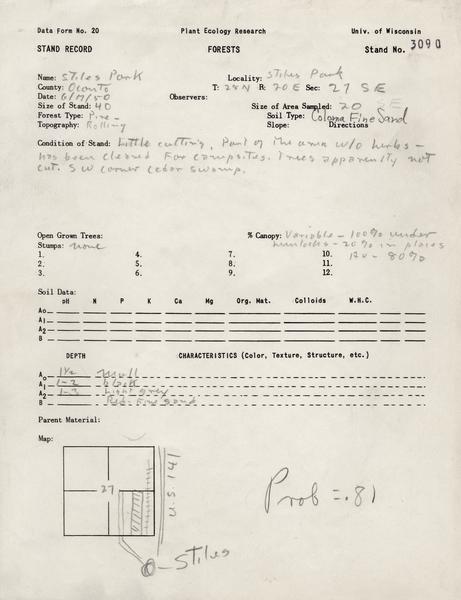 Data Form No. 20 Plant Ecology Research Univ. of Wisconsin
STAND RECORD FORESTS Stand No. 3090
Name: Stiles Park Locality: Stiles Park
County: Oconto T: 28N R: 20E Sec: 27 SE
Date: 6/17/50 Observers:
Size of Stand: 40 Size of Area Sampled: 20 SE
Forest Type: Pine - Soil Type: Coloma Fine Sand
Topography: Rolling Slope: Directions
Condition of Stand: Little cutting, Part of the area w/o herbs -
has been cleared For campsites. Trees apparently not
cut. SW corner cedar swamp.
Open Grown Trees: % Canopy: Variable - 100% under
Stumps: none hemlocks - 20% in places
1. 4. 7. 10. - 80%
2. 5. 8. 11.
3. 6. 9. 12.
Soil Data:
pH N P K Ca Mg Org. Mat. Colloids W.H.C.
A₀
A₁
A₂
B
DEPTH CHARACTERISTICS (Color, Texture, Structure, etc.)
A₀ 1½ mull
A₁ 1-2 black
A₂ 1-3 Light grey
B Red. Fine Sand
Parent Material:
Map:
27
U.S. 141
Prob = .81
Stiles